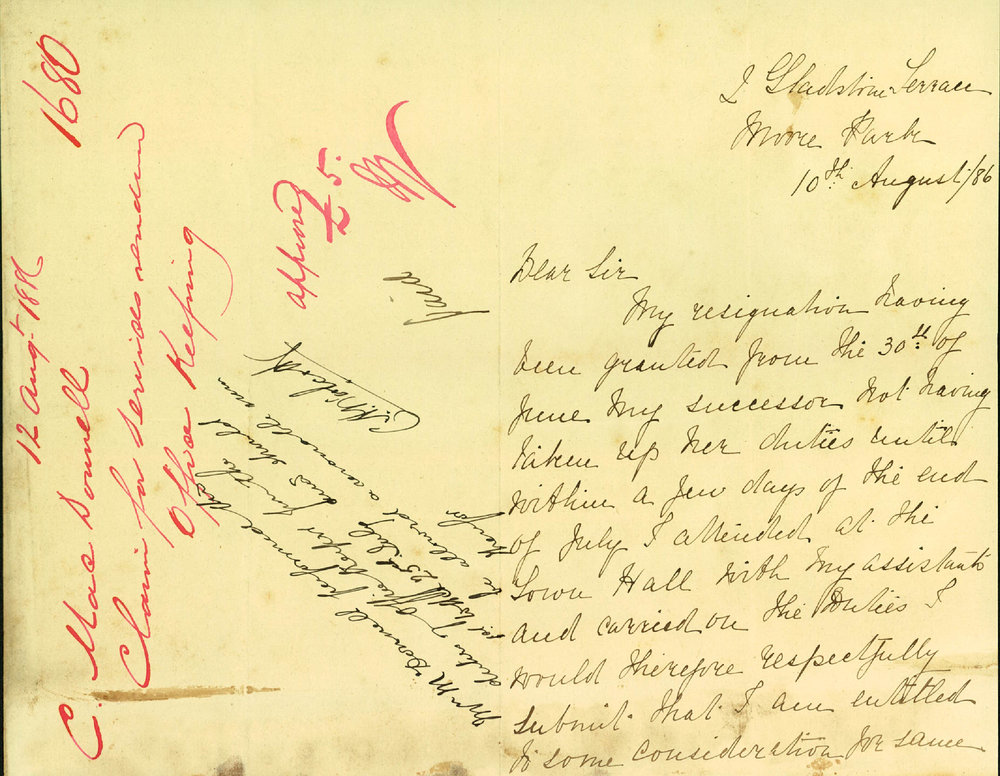 C. MacDonnell
12 Augt. 1886
1680
Claim for services rendered
Office Keeping
approved
£5.
paid
Mrs McDonnell performed the
duties of Office Keeper for the
until 25th July this should
be allowed a month's
therefor
2 Gladstone Terrace
Moore Park
10th August/86
Dear Sir
My resignation having
been granted from the 30th of
June my successor not having
taken up her duties until
within a few days of the end
of July I attended at the
Town Hall with my assistants
and carried on the Duties I
would therefore respectfully
submit that I am entitled
to some consideration for same